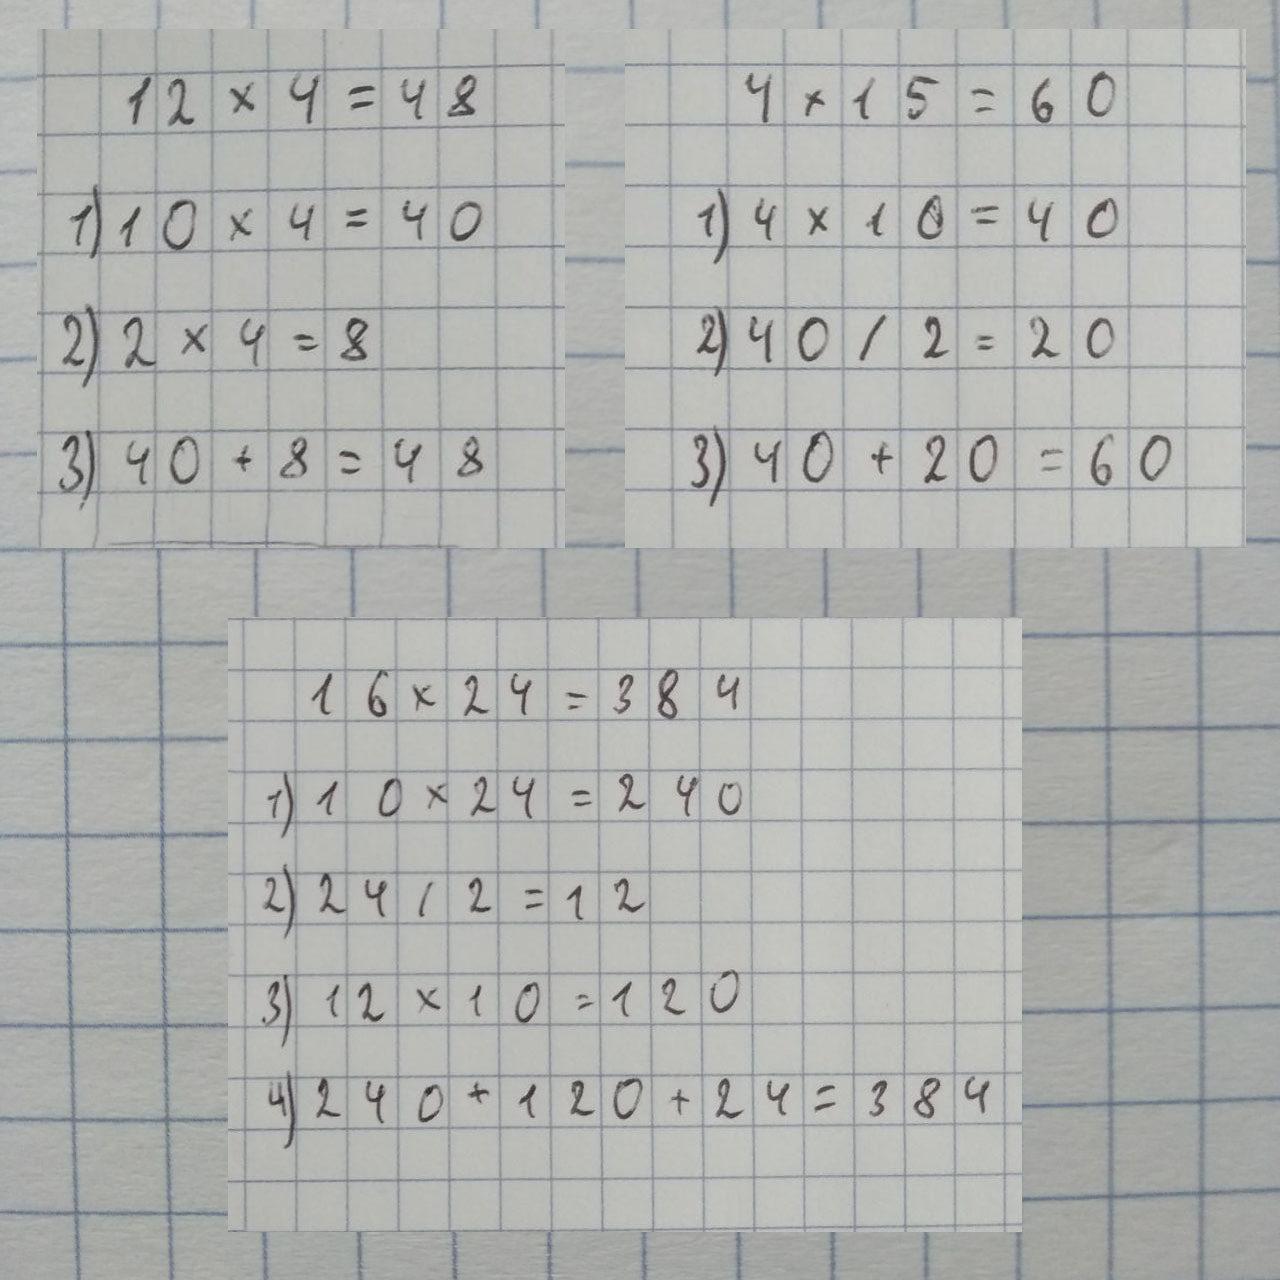 12 × 4 = 48
1) 10 × 4 = 40
2) 2 × 4 = 8
3) 40 + 8 = 48
4 × 15 = 60
1) 4 × 10 = 40
2) 40 / 2 = 20
3) 40 + 20 = 60
16 × 24 = 384
1) 10 × 24 = 240
2) 24 / 2 = 12
3) 12 × 10 = 120
4) 240 + 120 + 24 = 384